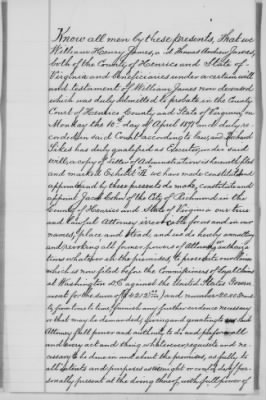 Know all men by these presents, That we
William Henry James, and Thomas Andrew James,
both of the County of Henrico and State of
Virginia and beneficiaries under a certain will
and testament of William James now deceased
which was duly admitted to probate in the County
Court of Henrico County and State of Virginia, on
Monday the day of April 1877 and duly re-
corded in said Court according to law, and
Sikes has duly qualified as Executor under said
will, a copy of letter of administration is herewith filed
and marked Exhibit "A" we have made constituted
appointed and by these presents do make, constitute and
appoint Jack Cohn of the City of Richmond in the
County of Henrico and State of Virginia our true
and lawful Attorney irrevocable for us and in our
names, place and stead, and we do hereby annulling
and revoking all former powers of Attorney or authoriza-
tions whatever in the premises, to prosecute our claim
which is now filed before the Commissioners of Legal Claims
at Washington D.C. against the United States Govern-
ment for the sum of and number
to from time to time furnish any further evidence necessary
or that may be demanded, giving and granting to our said
Attorney full power and authority to do and perform all
and every act and thing whatsoever requisite and ne-
cessary to be done in and about the premises, as fully to
all intents and purposes as we might or could do if per-
sonally present at the doing thereof, with full power of